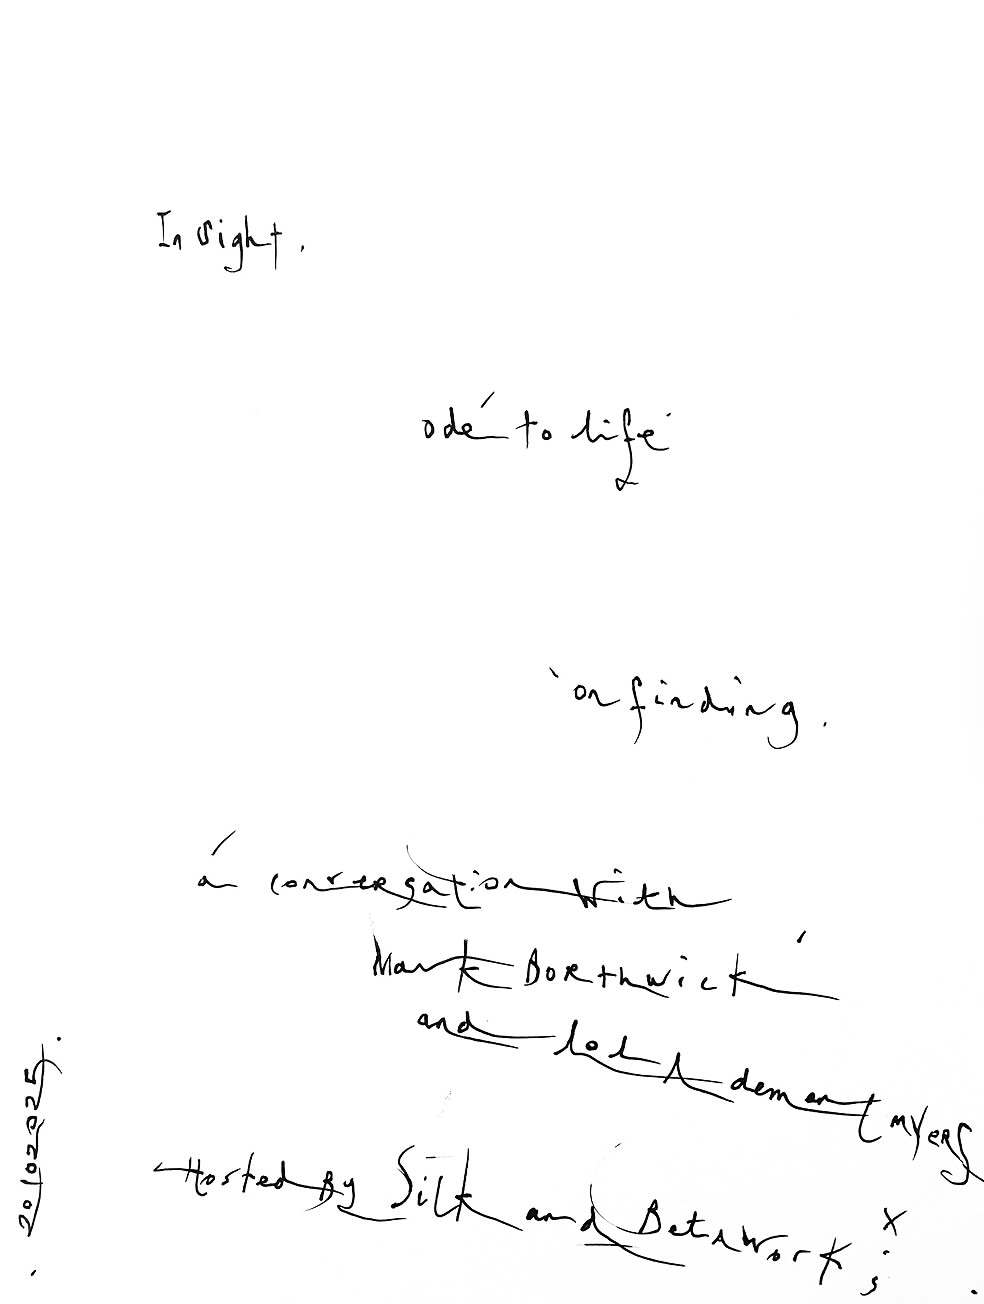 In sight.
odé to life
'on finding.
a conversation with
Mark Borthwick
and lola demant myers
Hosted By Silk and BetAWorks
x
20102025.